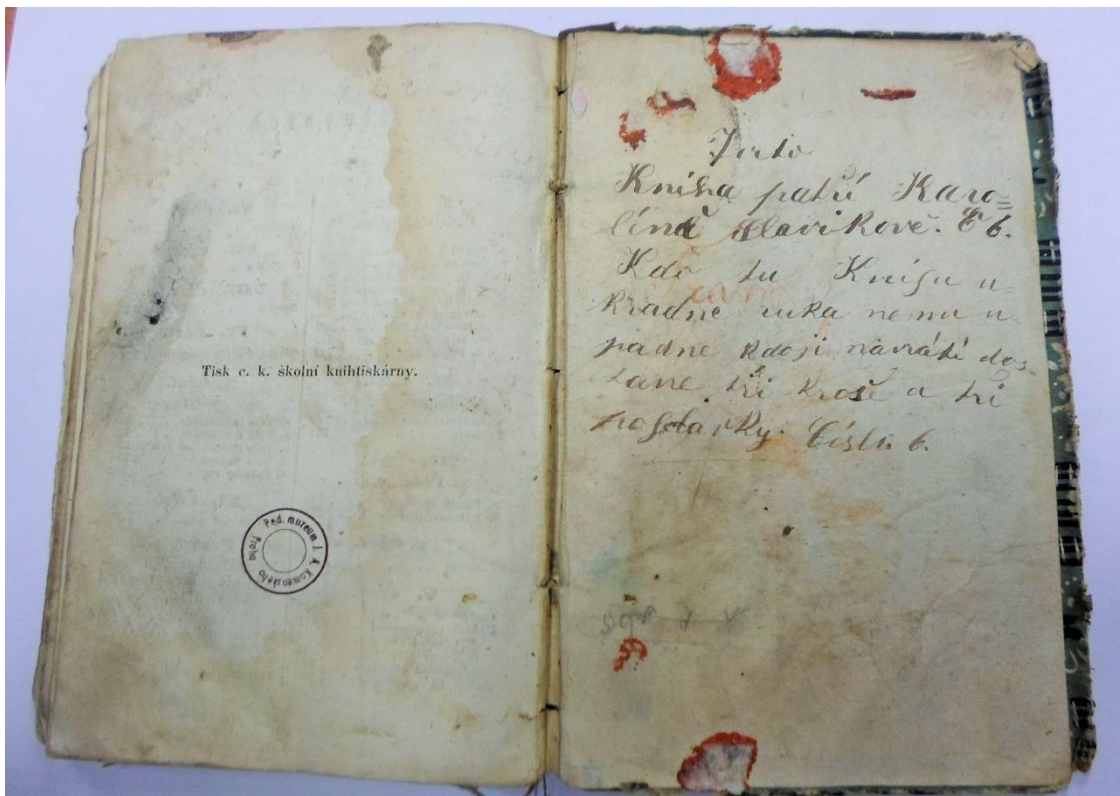 Tisk c. k. školní knihtiskárny.
Ped. muzeum J. A. Komenského
Praha
Tato
Kniha patří Karo=
líně Slavikově. Č 6.
Kdo tu Knihu u-
kradne ruka nemu u-
padne kdoji navrátí dos-
tane tři kroše a tři
pohlavky. Číslo 6.